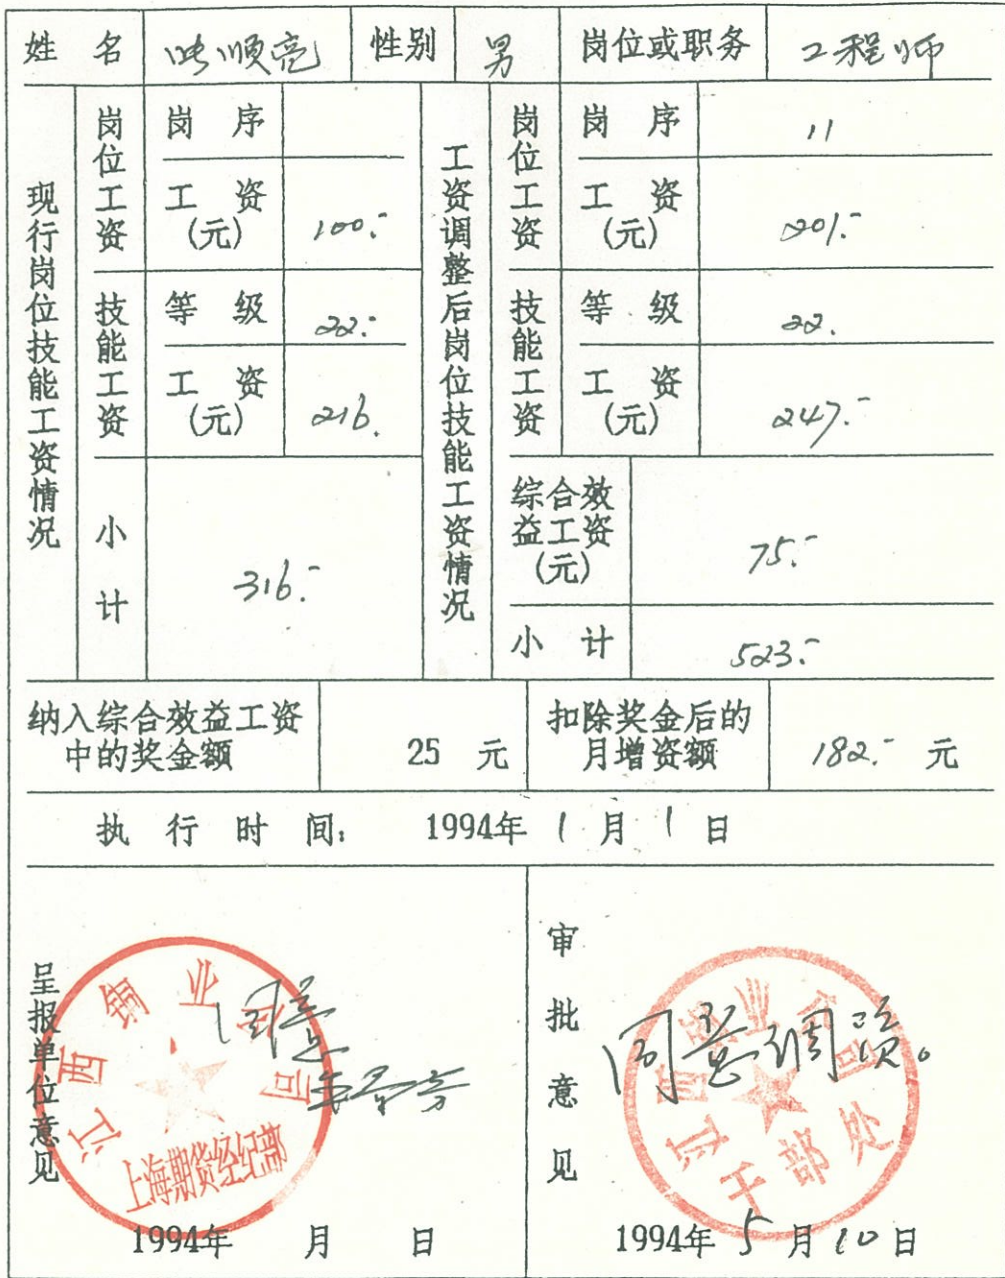 姓 名 顺亮 性别 男 岗位或职务 工程师
现行岗位技能工资情况
岗位工资 岗 序
工 资(元) 100.-
技能工资 等 级 22.-
工 资(元) 216.
小计 316.-
工资调整后岗位技能工资情况
岗位工资 岗 序 11
工 资(元) 201.-
技能工资 等 级 22.
工 资(元) 247.-
综合效益工资(元) 75.-
小 计 523.-
纳入综合效益工资中的奖金额 25 元
扣除奖金后的月增资额 182.- 元
执 行 时 间: 1994年 1 月 1 日
呈报单位意见
同意
江西铜业公司
上海期货经纪部
1994年 月 日
审批意见
同意调资。
江西铜业公司
干部处
1994年 5 月 10 日